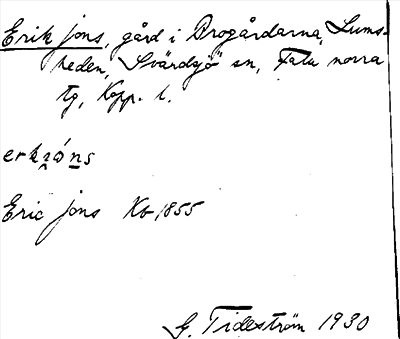 Erik jons, gård i Brogårdarna, Lums-
heden, Svärdsjö sn, Falu norra
tg, Kopp. l.
erksóns
Eric jons Kb 1855
G. Tideström 1930